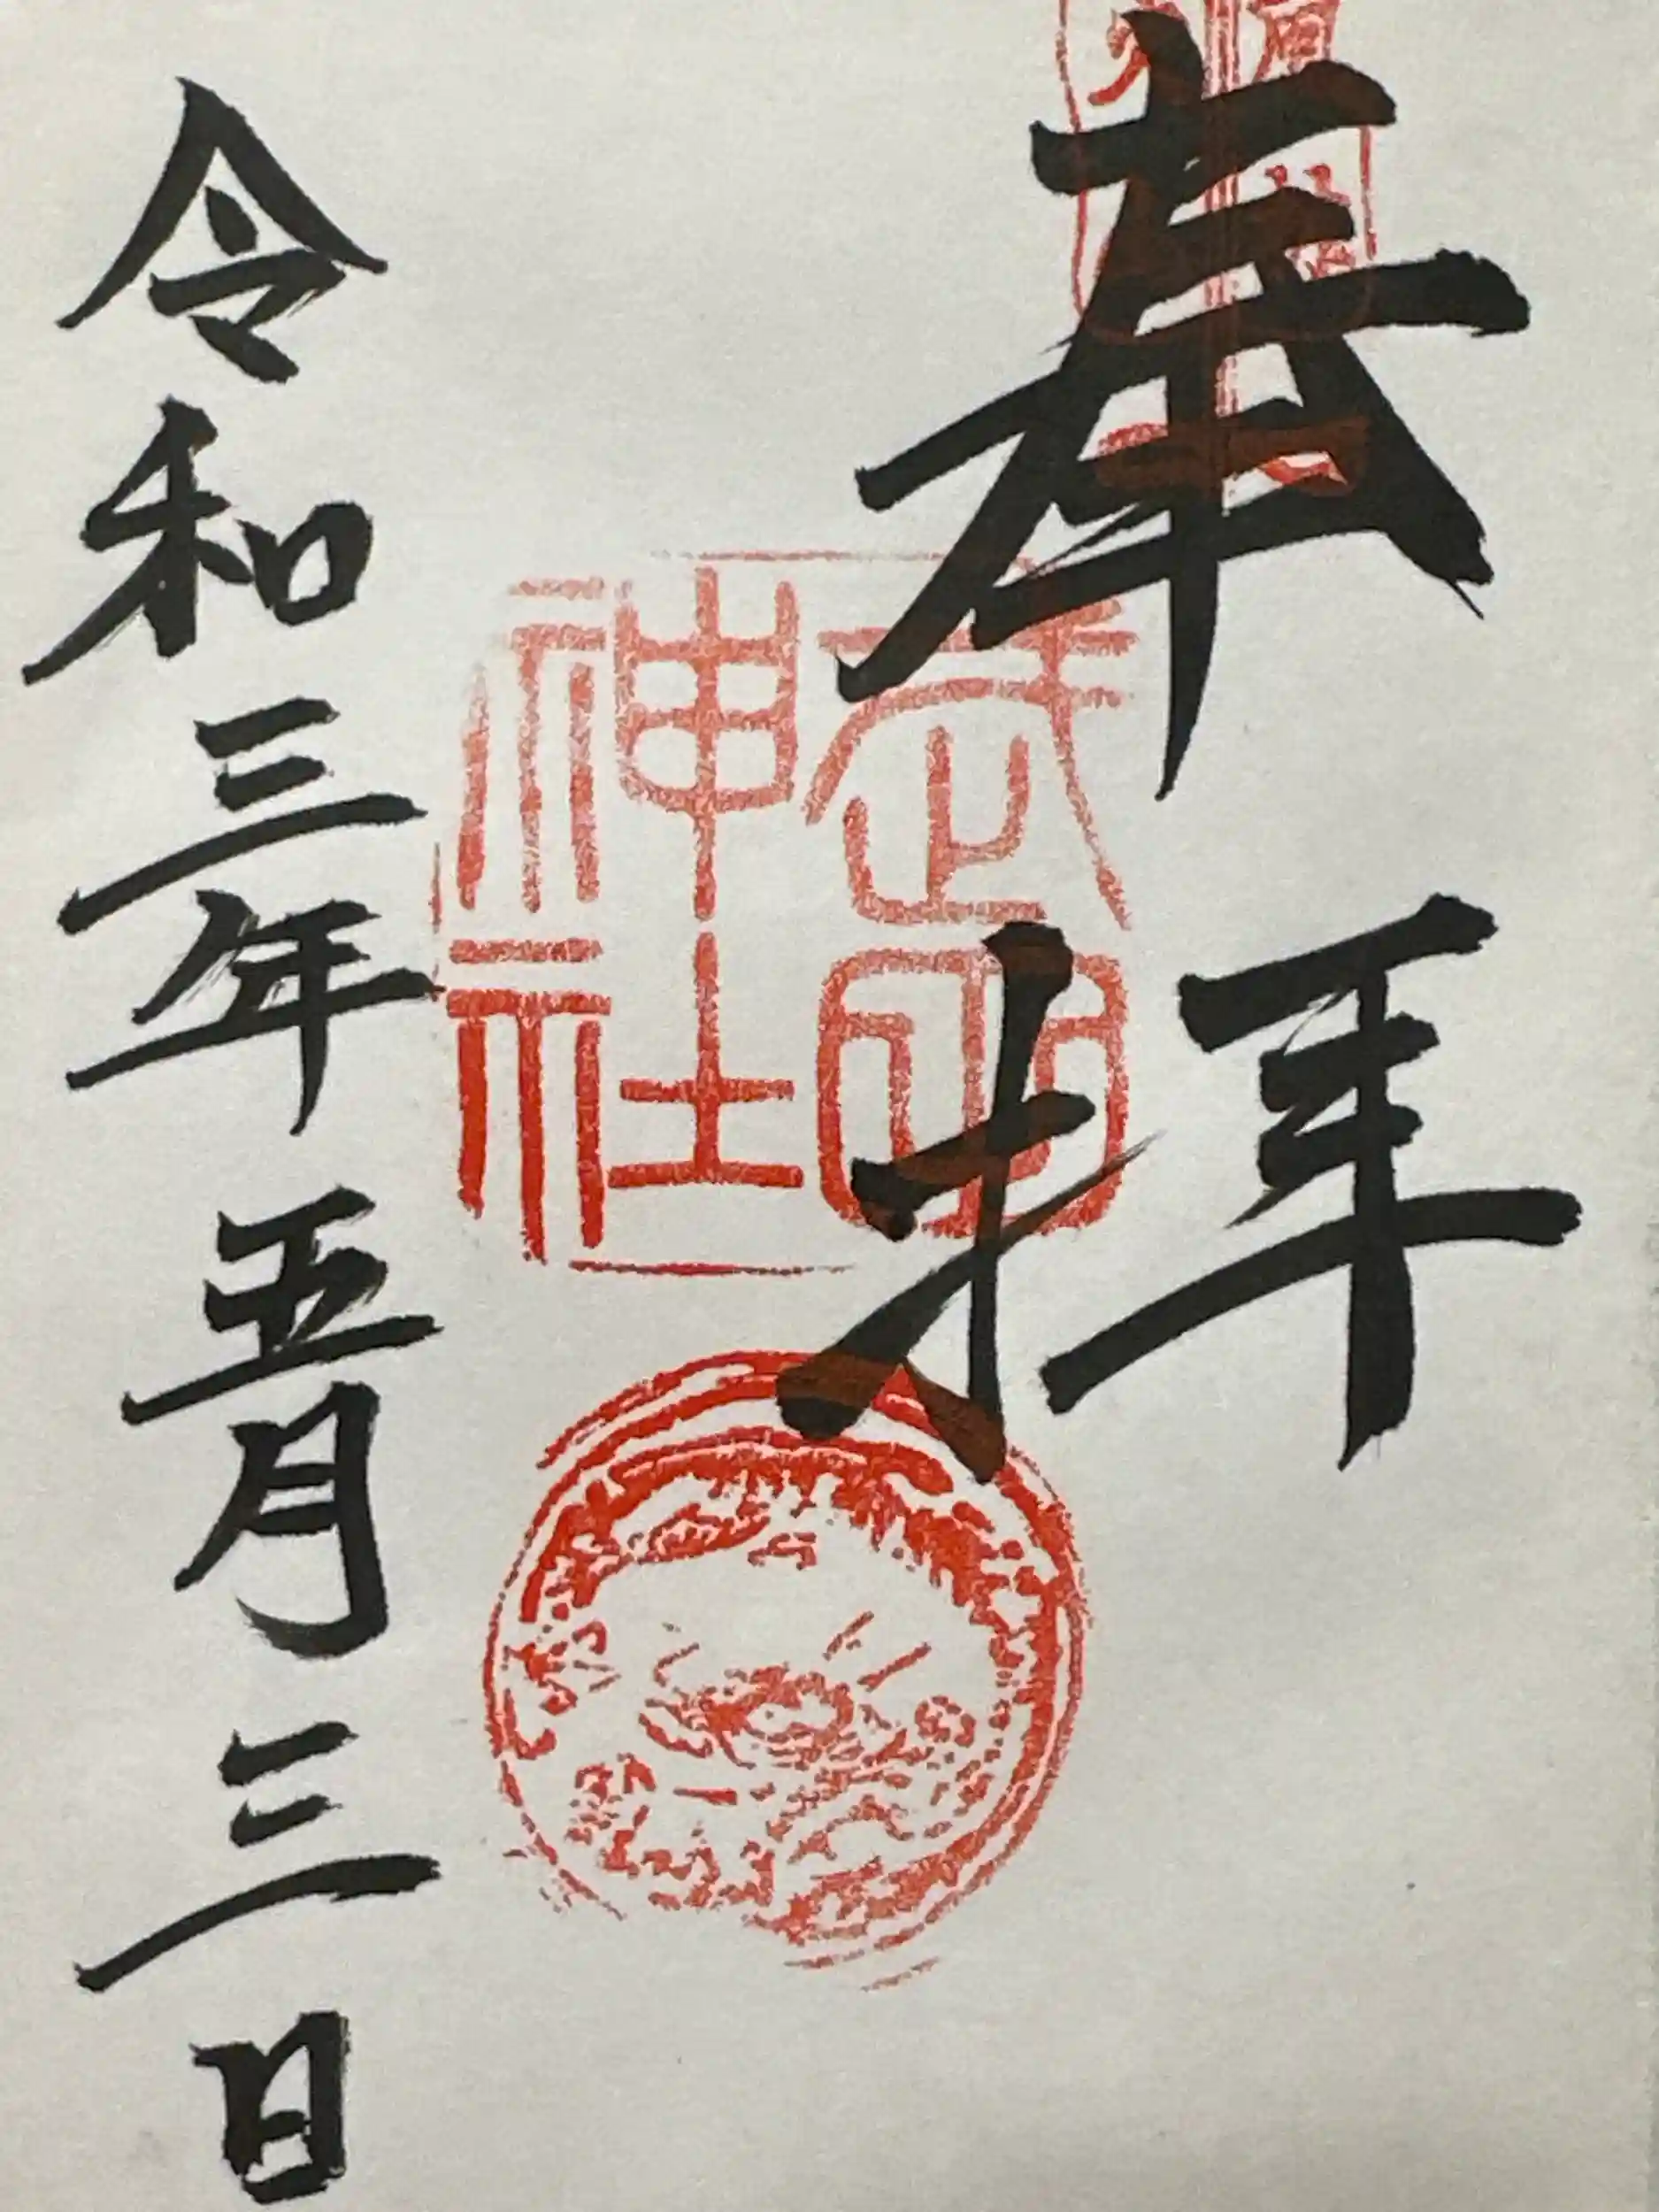 奉拝
武田
神社
令和三年五月三日